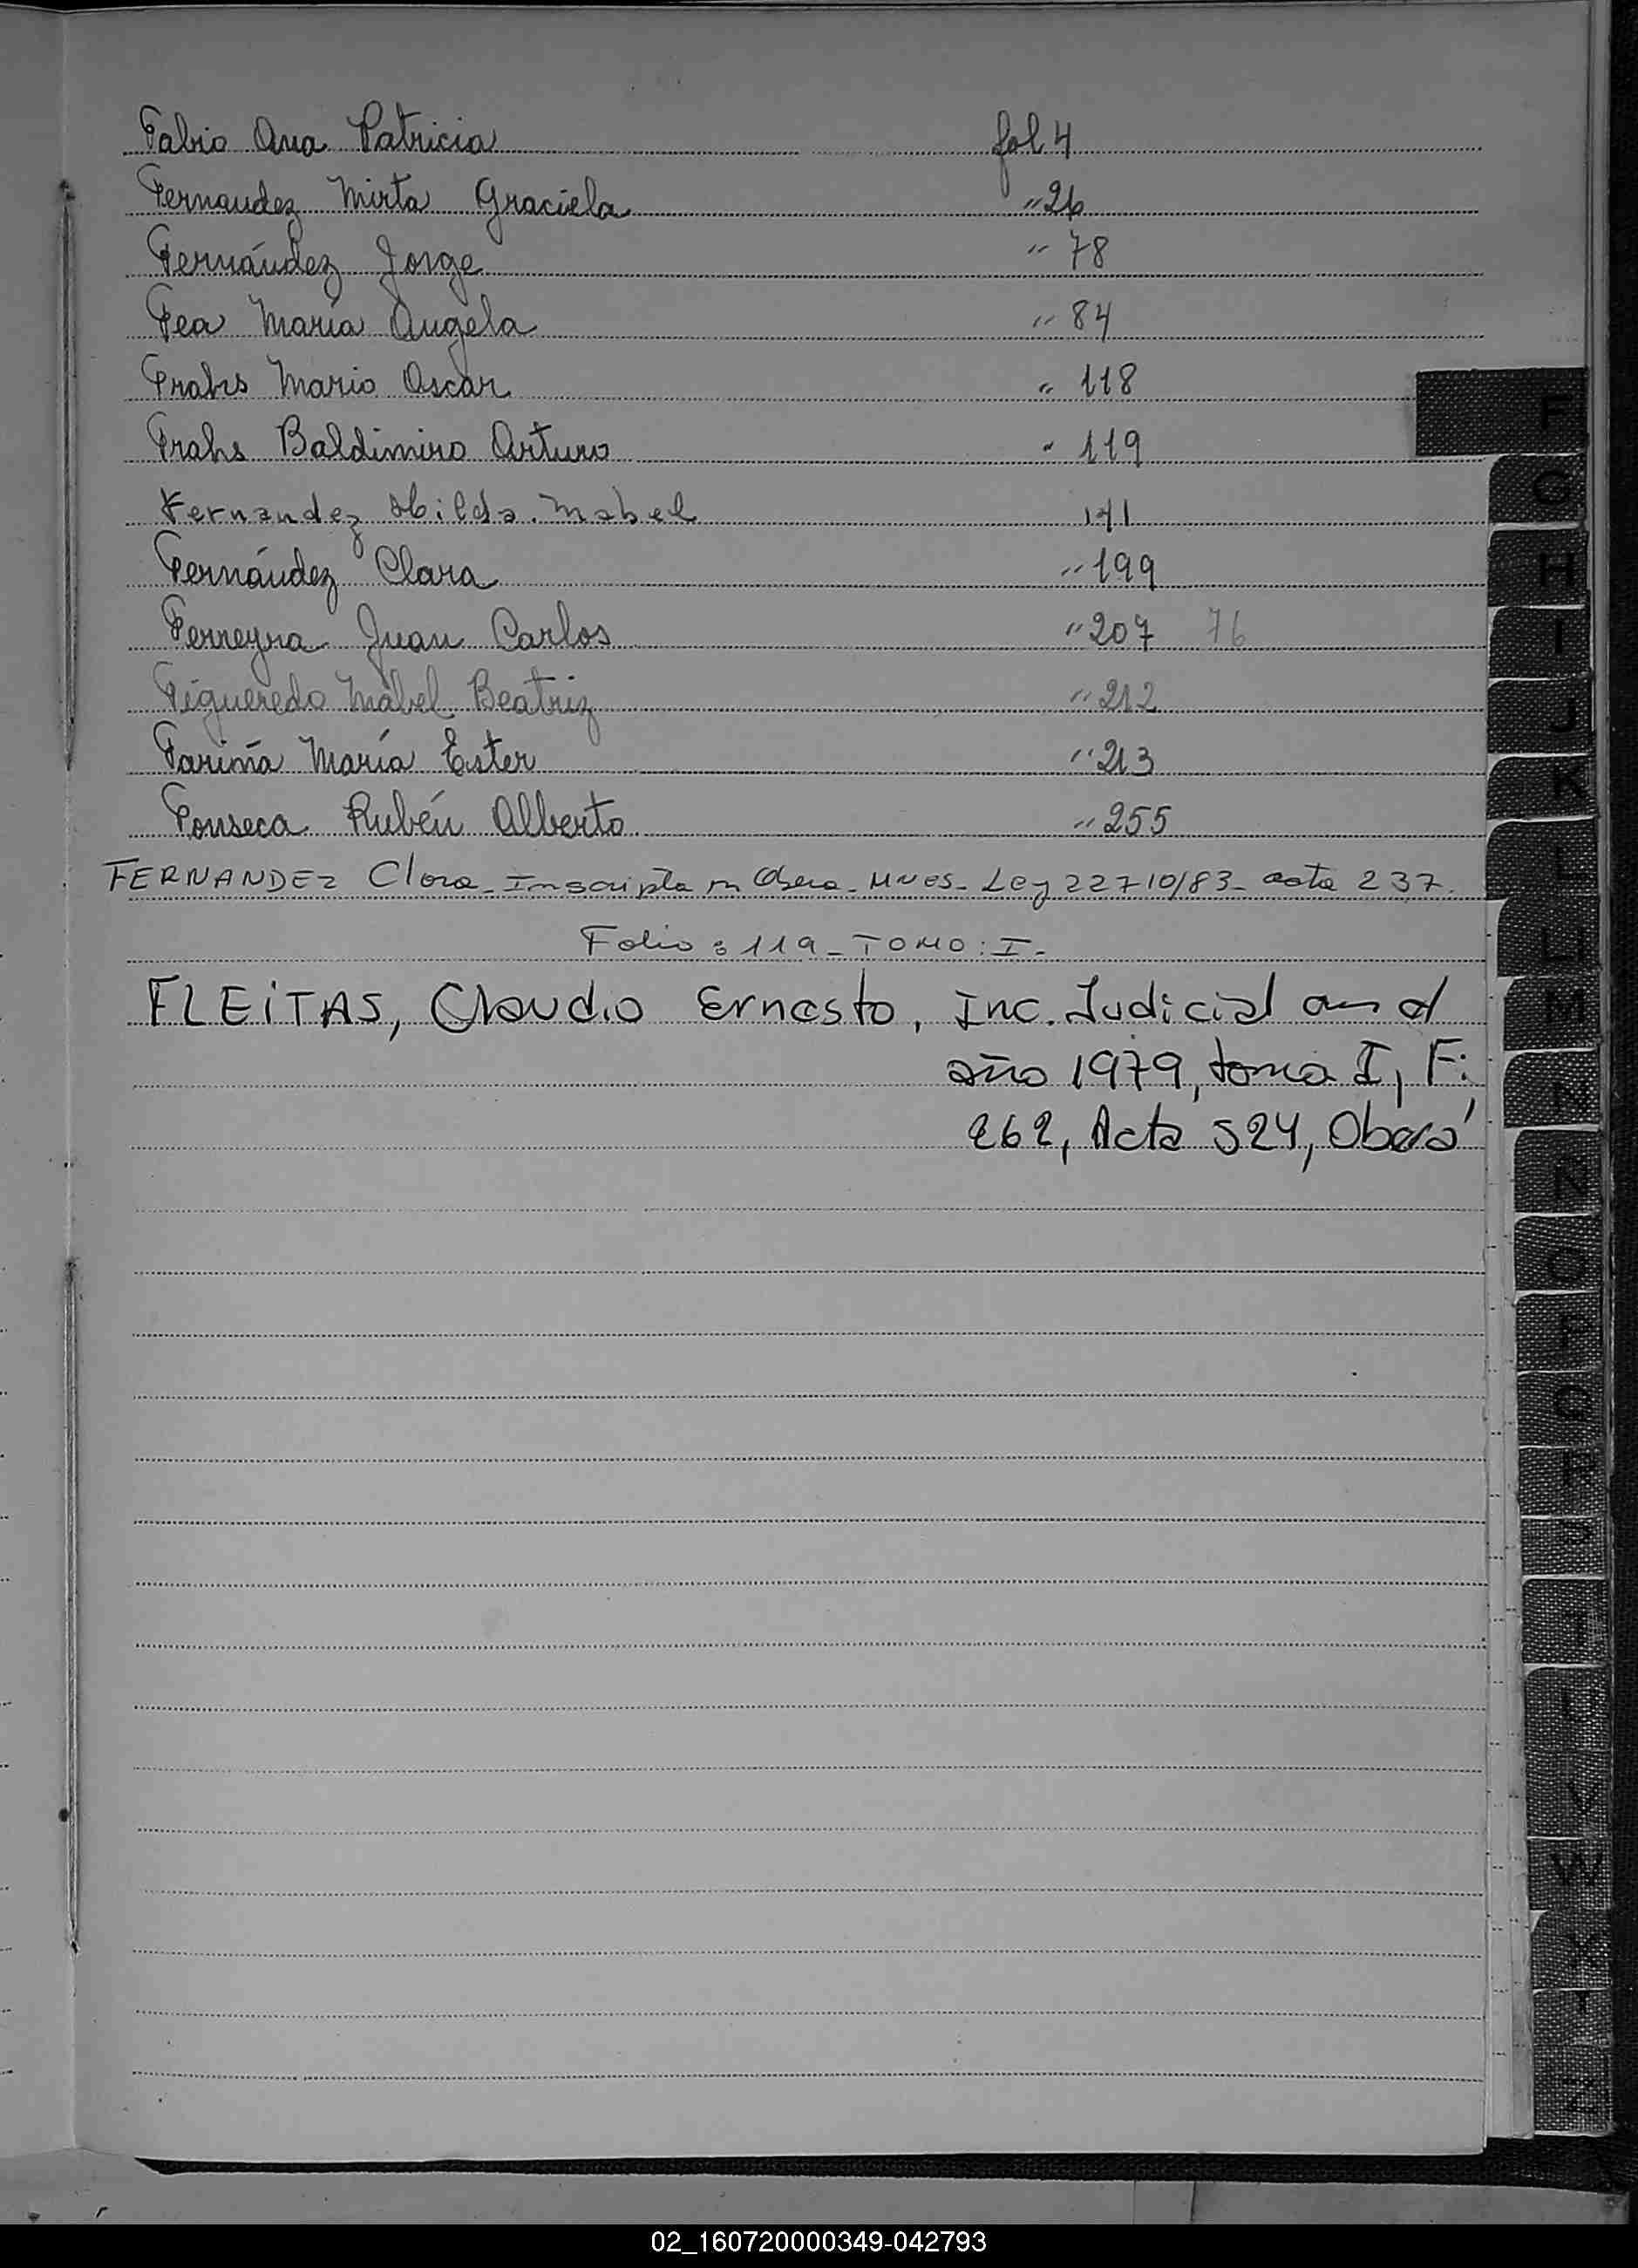 Fabio Ana Patricia fol 4
Fernandez Mirta Graciela " 26
Fernández Jorge " 78
Fea María Angela " 84
Frahs Mario Oscar " 118
Frahs Baldimiro Arturo " 119
Fernandez Hilda Mabel 141
Fernández Clara " 199
Ferreyra Juan Carlos " 207 76
Figueredo Mabel Beatriz " 212
Fariña María Ester " 213
Fonseca Rubén Alberto " 255
FERNANDEZ Clara - Inscripta en Obera - MNES - Ley 22710/83 - acta 237.
Folio: 119 - TOMO: I -
FLEiTAS, Claudio Ernesto, Inc. Judicial en el
año 1979, tomo I, F:
262, Acta 524, Oberá
F
G
H
I
J
K
L
LL
M
N
Ñ
O
P
Q
R
S
T
U
V
W
X
Y
Z
02_160720000349-042793